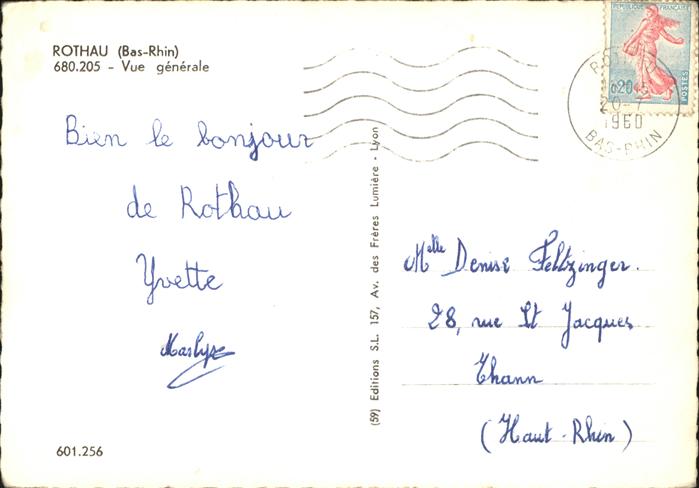 ROTHAU (Bas-Rhin)
680.205 - Vue générale
Bien le bonjour
de Rothau
Yvette
Marlyse
601.256
(59) Editions S.L. 157, Av. des Frères Lumière - Lyon
REPUBLIQUE FRANÇAISE
0,20
POSTES
20-7
1960
BAS-RHIN
Melle Denise Feltzinger.
28, rue St Jacques
Thann
(Haut-Rhin)